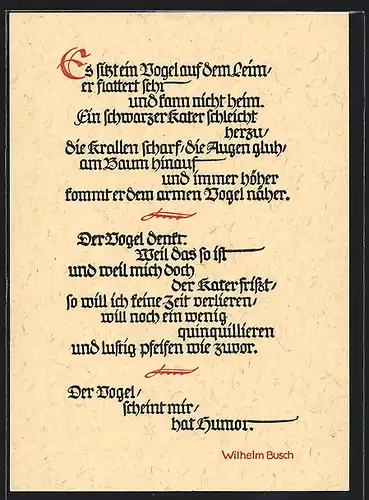 Es sitzt ein Vogel auf dem Leim,
er flattert sehr
und kann nicht heim.
Ein schwarzer Kater schleicht
herzu,
die Krallen scharf, die Augen gluh,
am Baum hinauf
und immer höher
kommt er dem armen Vogel näher.
Der Vogel denkt:
Weil das so ist
und weil mich doch
der Kater frißt,
so will ich keine Zeit verlieren,
will noch ein wenig
quinquillieren
und lustig pfeifen wie zuvor.
Der Vogel,
scheint mir,
hat Humor.
Wilhelm Busch